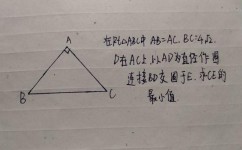 A
B
C
在Rt△ABC中 AB=AC. BC=4√2.
D在AC上 以AD为直径作圆
连接BD交圆于E. 求CE的
最小值